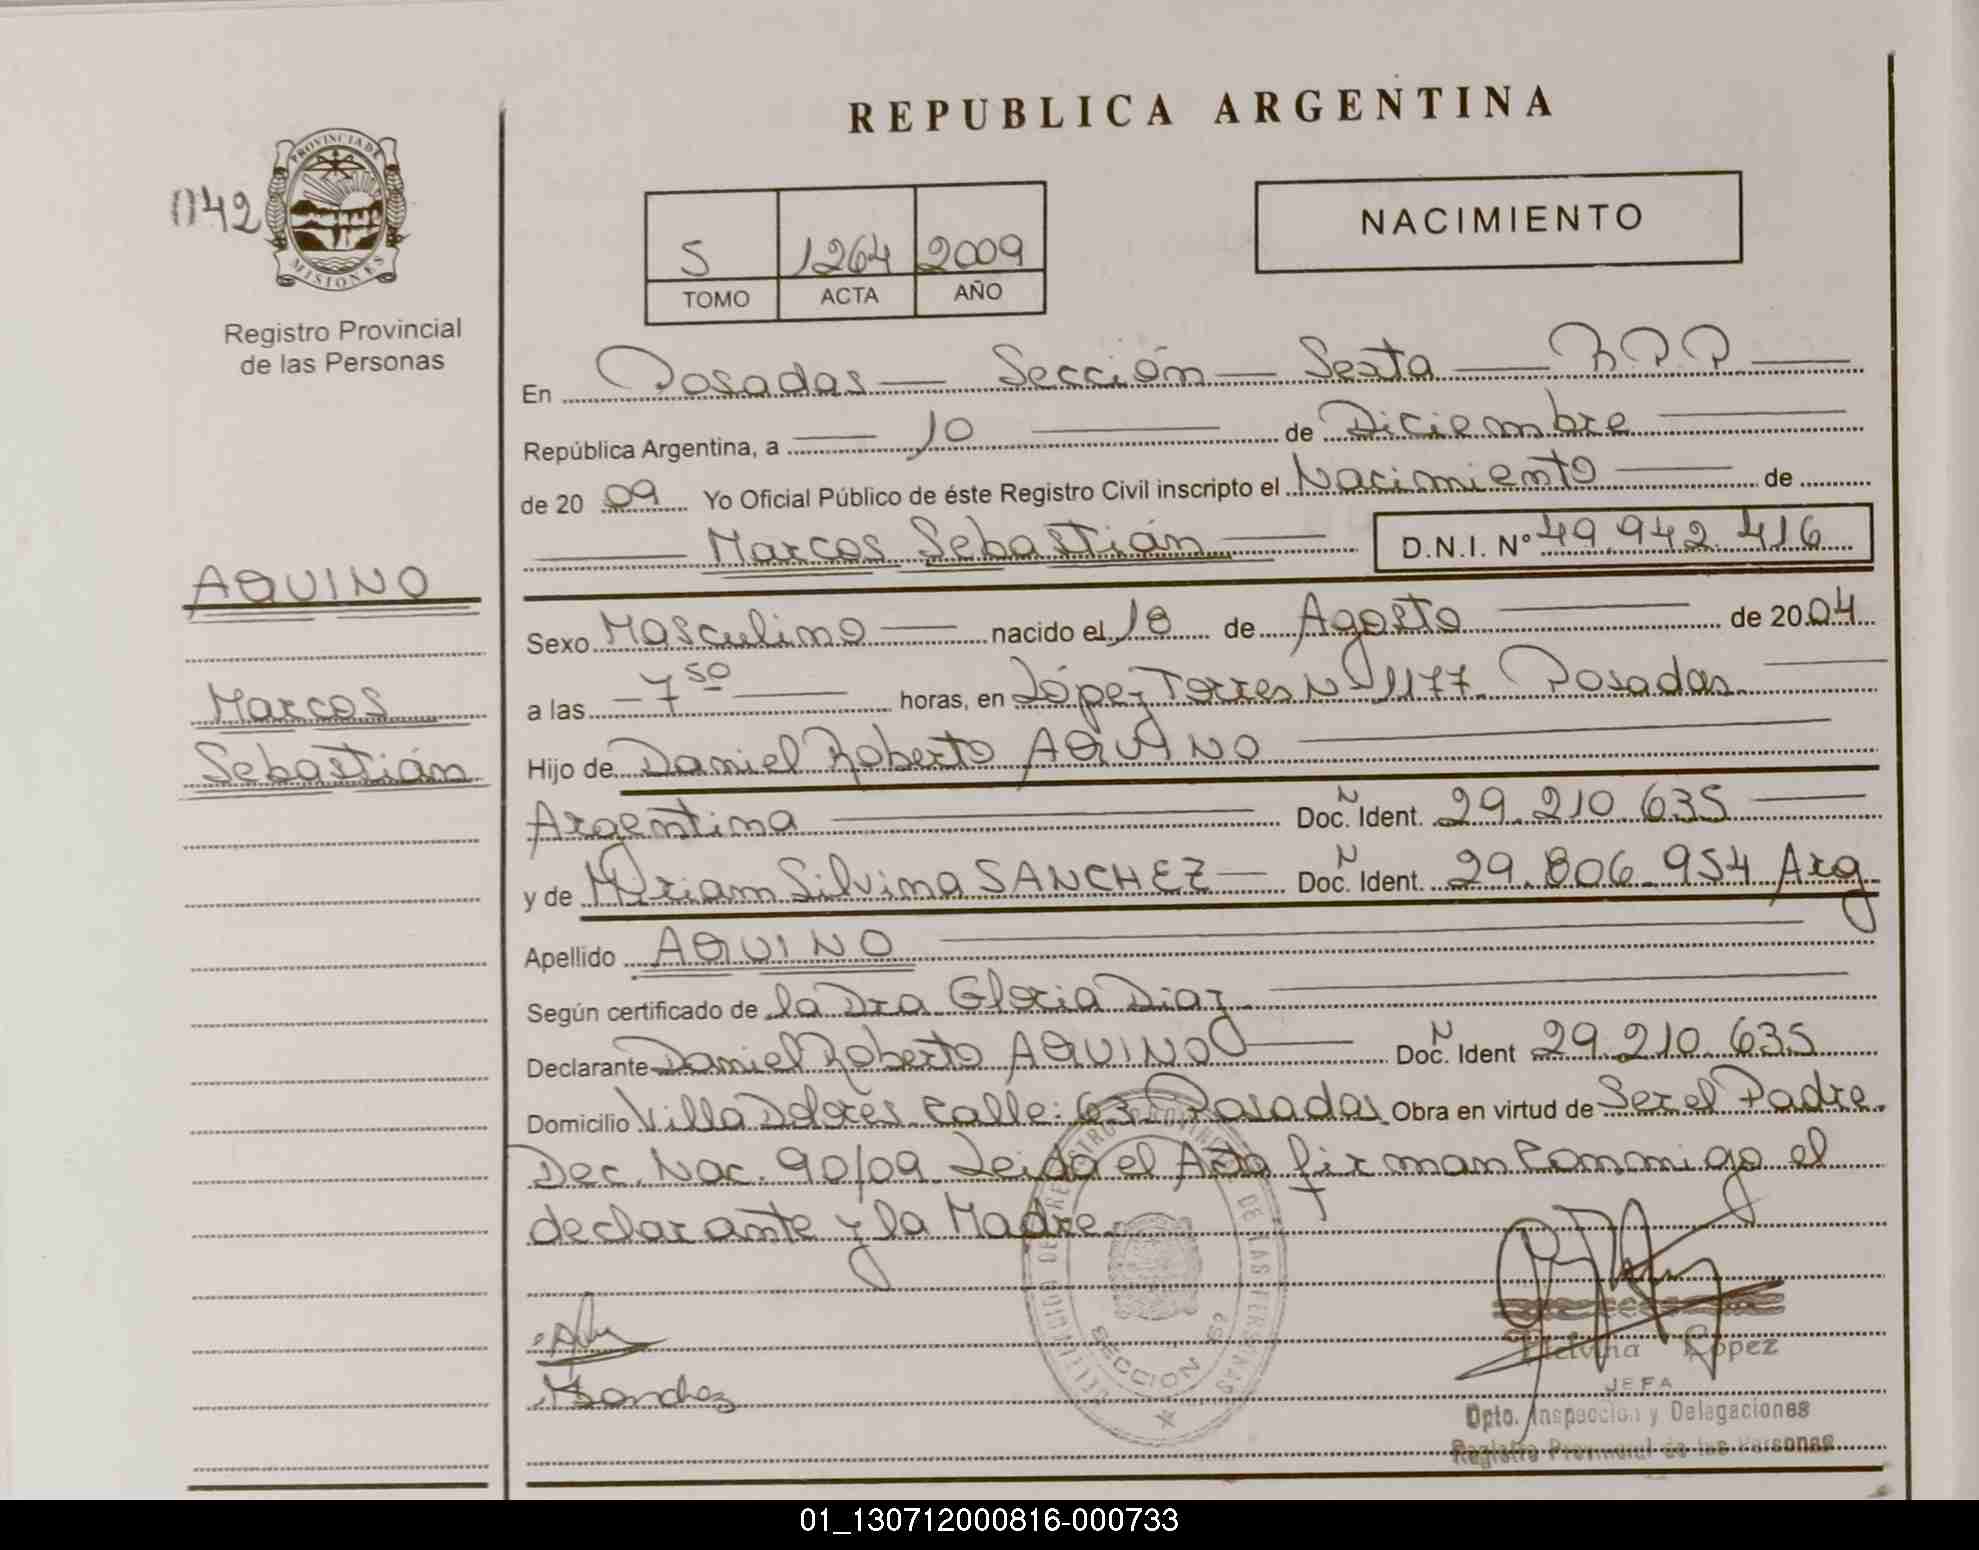 REPUBLICA ARGENTINA
PROVINCIA DE
MISIONES
1142
Registro Provincial
de las Personas
5 1264 2009
TOMO ACTA AÑO
NACIMIENTO
En Posadas — Sección — Sexta — R.P.P. —
República Argentina, a — 10 — de Diciembre —
de 20 09 Yo Oficial Público de éste Registro Civil inscripto el Nacimiento — de
— Marcos Sebastián — D.N.I. N° 49.942.416
AQUINO
Marcos
Sebastián
Sexo Masculino — nacido el 18 de Agosto — de 20 04
a las — 7 50 — horas, en López Torres Nº 1177. Posadas —
Hijo de Daniel Roberto AQUINO —
Argentina — Doc. N Ident. 29.210.635 —
y de Myriam Silvina SANCHEZ — Doc. N Ident. 29.806.954 Arg
Apellido AQUINO —
Según certificado de la Dra Gloria Diaz —
Declarante Daniel Roberto AQUINO — Doc. N Ident 29.210.635
Domicilio Villa Dolores Calle: 63 Posadas Obra en virtud de Ser el Padre.
Dec. Nac. 90/09 Leida el Acta firman Conmigo el
declarante y la Madre.
REGISTRO PROVINCIAL DE LAS PERSONAS
SECCION 6ª
Sanchez
Melvina López
JEFA
Dpto. Inspección y Delegaciones
Registro Provincial de las Personas
01_130712000816-000733